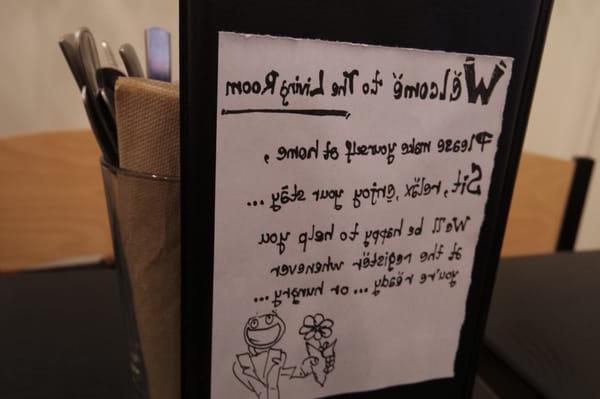 Wëlcomë to The Living Room
Please make yourself at home,
Sit, reläx, enjoy your stäy ...
We'll be happy to help you
at the registër whenever
you're rëady ... or hungry ...